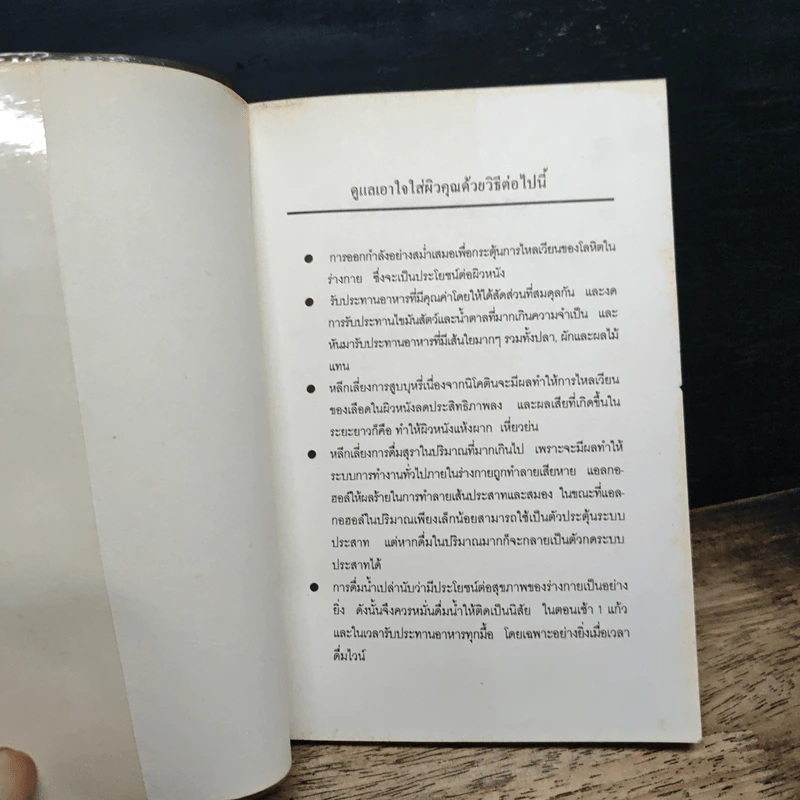 ดูแลเอาใจใส่ผิวคุณด้วยวิธีต่อไปนี้
● การออกกำลังอย่างสม่ำเสมอเพื่อกระตุ้นการไหลเวียนของโลหิตใน
ร่างกาย ซึ่งจะเป็นประโยชน์ต่อผิวหนัง
● รับประทานอาหารที่มีคุณค่าโดยให้ได้สัดส่วนที่สมดุลกัน และงด
การรับประทานไขมันสัตว์และน้ำตาลที่มากเกินความจำเป็น และ
หันมารับประทานอาหารที่มีเส้นใยมากๆ รวมทั้งปลา, ผักและผลไม้
แทน
● หลีกเลี่ยงการสูบบุหรี่เนื่องจากนิโคตินจะมีผลทำให้การไหลเวียน
ของเลือดในผิวหนังลดประสิทธิภาพลง และผลเสียที่เกิดขึ้นใน
ระยะยาวก็คือ ทำให้ผิวหนังแห้งผาก เหี่ยวย่น
● หลีกเลี่ยงการดื่มสุราในปริมาณที่มากเกินไป เพราะจะมีผลทำให้
ระบบการทำงานทั่วไปภายในร่างกายถูกทำลายเสียหาย แอลกอ-
ฮอล์ให้ผลร้ายในการทำลายเส้นประสาทและสมอง ในขณะที่แอล-
กอฮอล์ในปริมาณเพียงเล็กน้อยสามารถใช้เป็นตัวประตุ้นระบบ
ประสาท แต่หากดื่มในปริมาณมากก็จะกลายเป็นตัวกดระบบ
ประสาทได้
● การดื่มน้ำเปล่านับว่ามีประโยชน์ต่อสุขภาพของร่างกายเป็นอย่าง
ยิ่ง ดังนั้นจึงควรหมั่นดื่มน้ำให้ติดเป็นนิสัย ในตอนเช้า 1 แก้ว
และในเวลารับประทานอาหารทุกมื้อ โดยเฉพาะอย่างยิ่งเมื่อเวลา
ดื่มไวน์